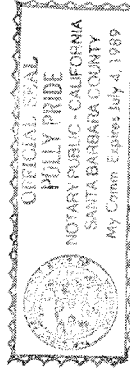 OFFICIAL SEAL
POLLY PRIDE
NOTARY PUBLIC - CALIFORNIA
SANTA BARBARA COUNTY
My Comm. Expires July 4, 1989